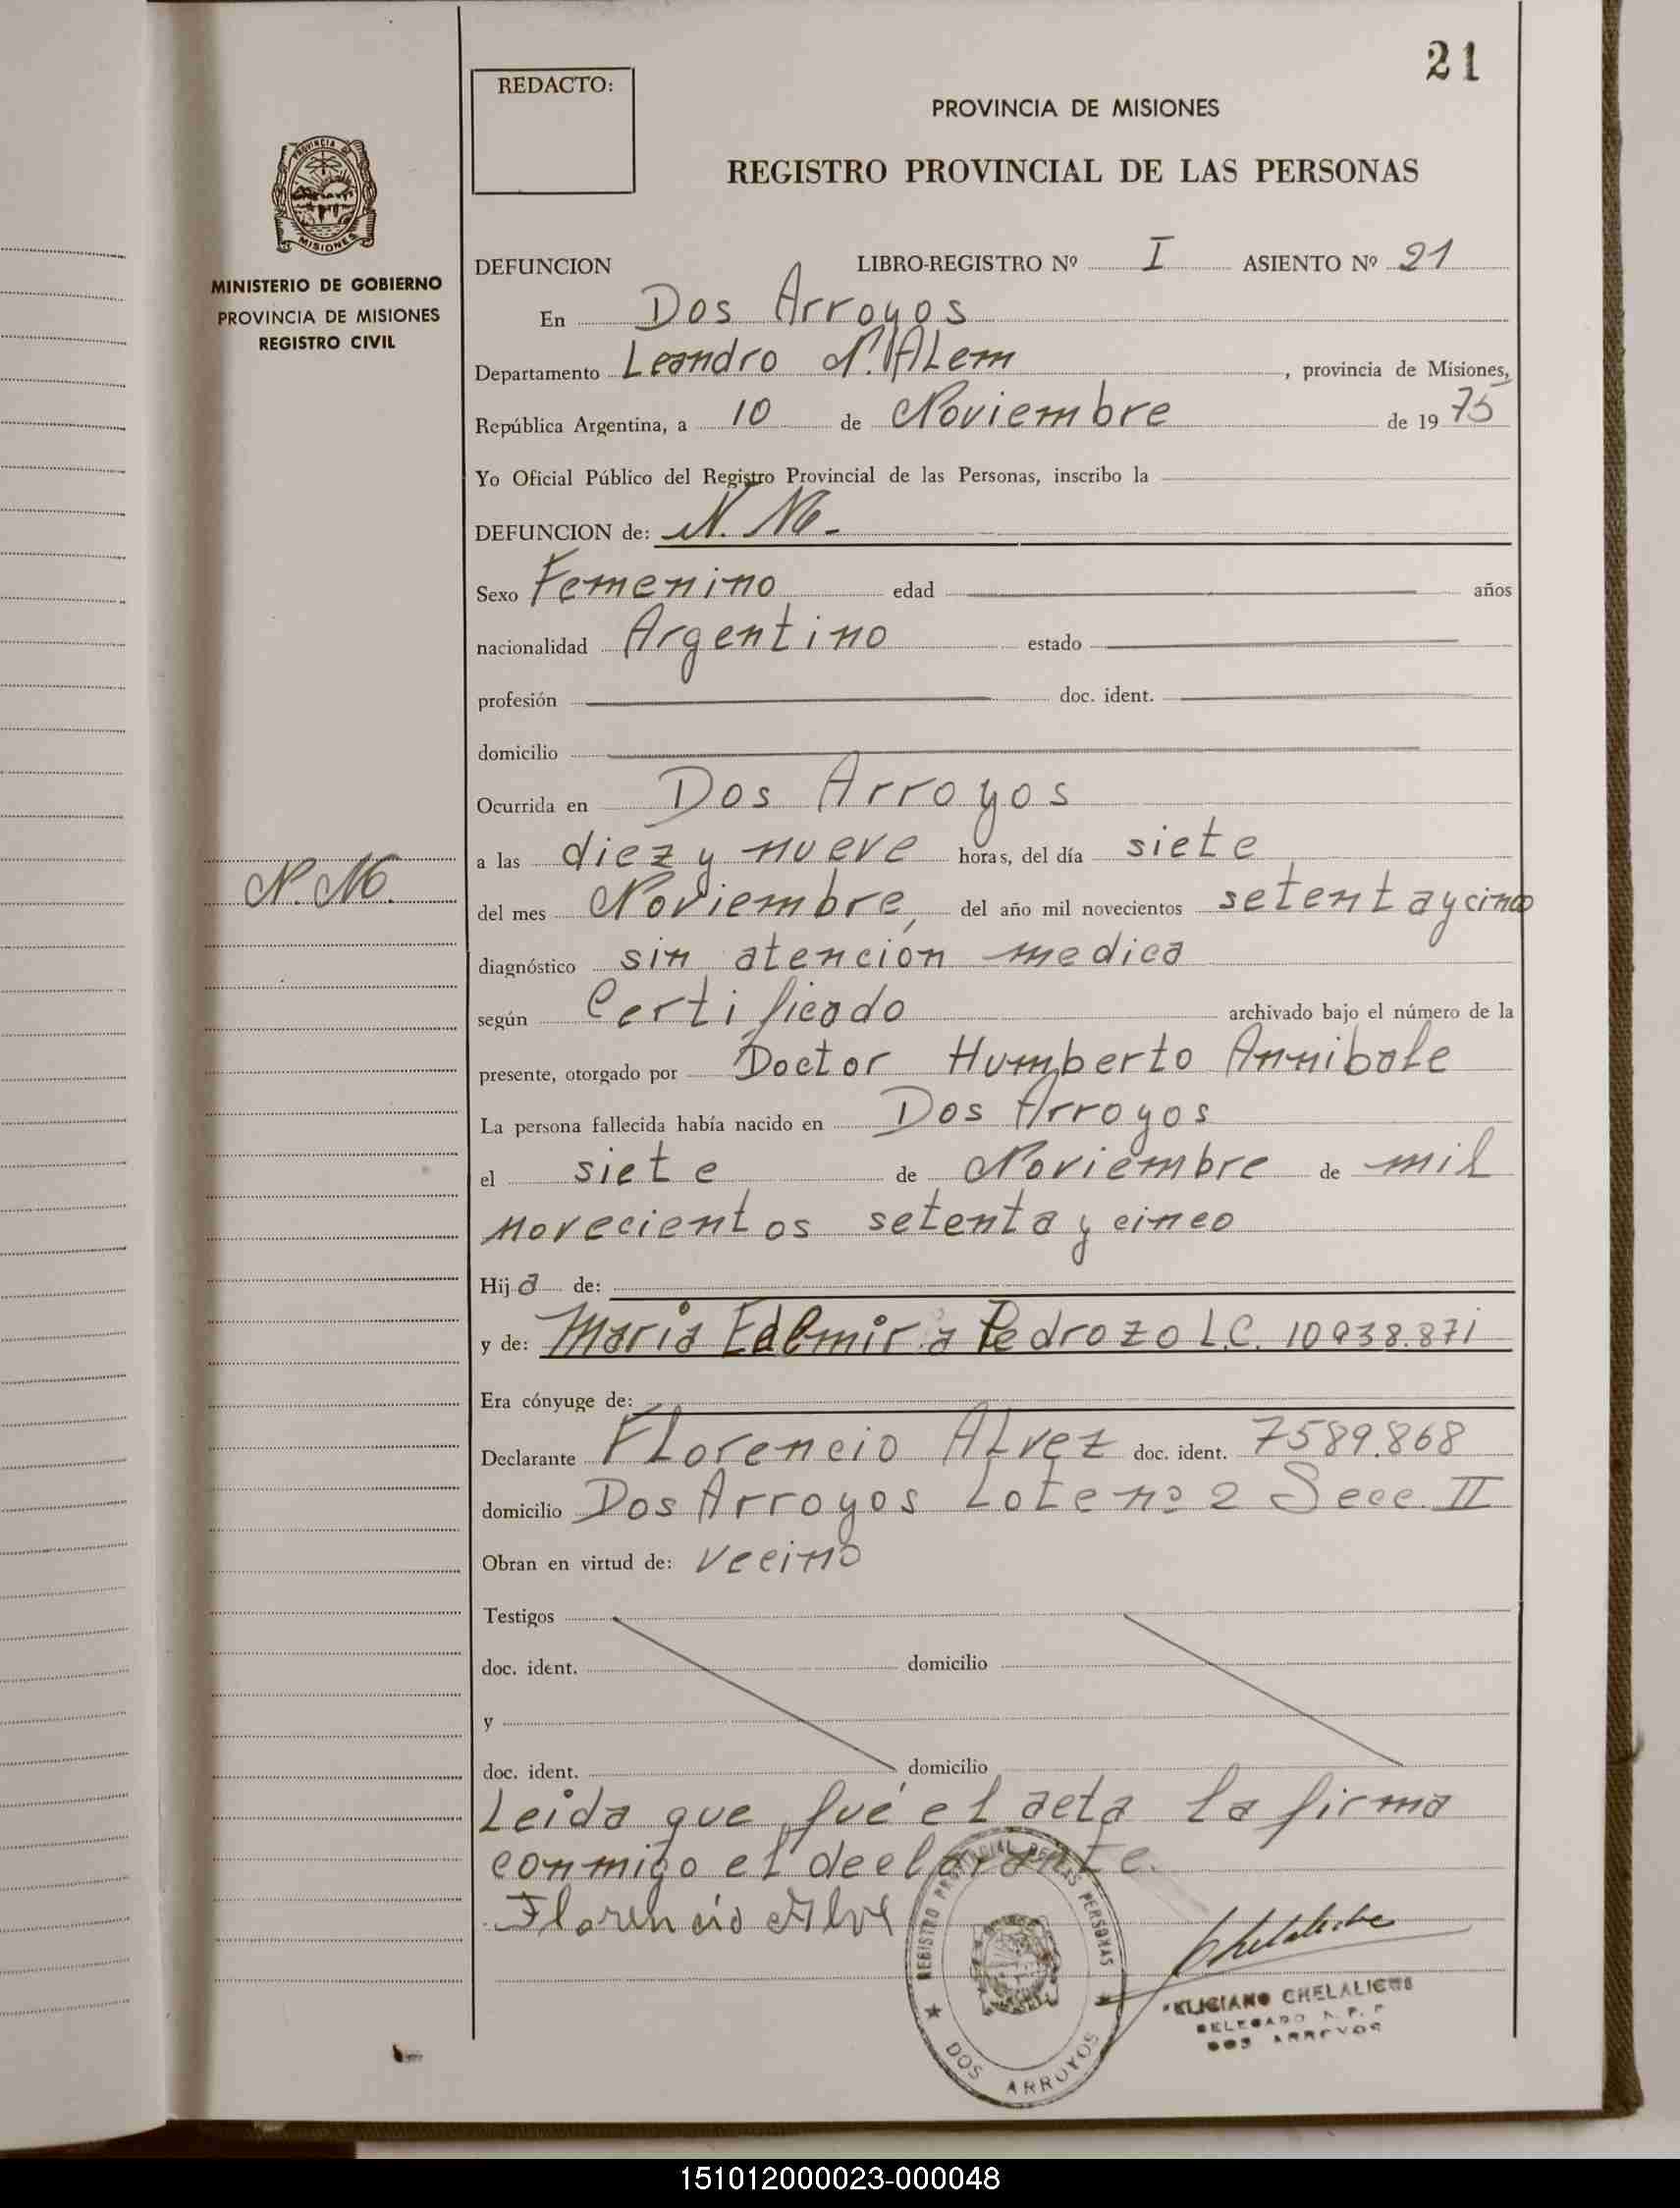 21
REDACTO:
PROVINCIA DE MISIONES
REGISTRO PROVINCIAL DE LAS PERSONAS
PROVINCIA DE
MISIONES
MINISTERIO DE GOBIERNO
PROVINCIA DE MISIONES
REGISTRO CIVIL
DEFUNCION LIBRO-REGISTRO Nº I ASIENTO Nº 21
En Dos Arroyos
Departamento Leandro N. ALem, provincia de Misiones,
República Argentina, a 10 de Noviembre de 1975
Yo Oficial Público del Registro Provincial de las Personas, inscribo la
DEFUNCION de: N. N.
Sexo Femenino edad años
nacionalidad Argentino estado
profesión doc. ident.
domicilio
Ocurrida en Dos Arroyos
a las diez y nueve horas, del día siete
N. N.
del mes Noviembre, del año mil novecientos setenta y cinco
diagnóstico sin atención medica
según Certificado archivado bajo el número de la
presente, otorgado por Doctor Humberto Annibale
La persona fallecida había nacido en Dos Arroyos
el siete de Noviembre de mil
novecientos setenta y cinco
Hija de:
y de: Maria Edlmira Pedrozo L.C. 10938.871
Era cónyuge de:
Declarante FLorencio ALvez doc. ident. 7589.868
domicilio Dos Arroyos Lote nº 2 Secc. II
Obran en virtud de: vecino
Testigos
doc. ident. domicilio
y
doc. ident. domicilio
Leida que fué el acta la firma
conmigo el declarante.
Florencio Alve
REGISTRO PROVINCIAL DE LAS PERSONAS
DOS ARROYOS
FELICIANO CHELALICHE
DELEGADO R. P. P.
DOS ARROYOS
151012000023-000048